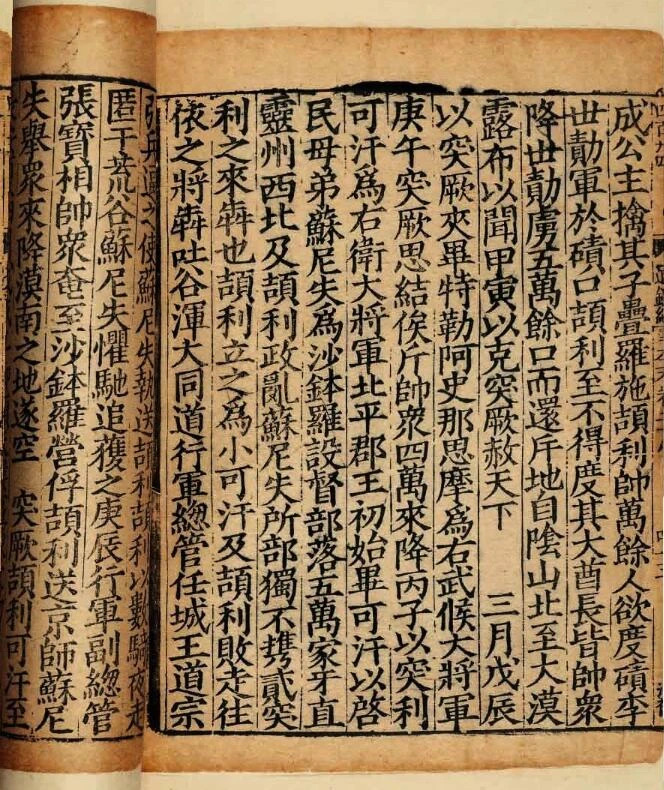 成公主擒其子疊羅施頡利帥萬餘人欲度磧李
世勣軍於磧口頡利至不得度其大酋長皆帥衆
降世勣虜五萬餘口而還斥地自隂山北至大漠
露布以聞甲寅以克突厥赦天下　三月戊辰
以突厥夾畢特勒阿史那思摩爲右武候大將軍
庚午突厥思結俟斤帥衆四萬來降丙子以突利
可汗爲右衛大將軍北平郡王初始畢可汗以啓
民母弟蘇尼失爲沙鉢羅設督部落五萬家牙直
靈州西北及頡利政亂蘇尼失所部獨不攜貳突
利之來犇也頡利立之爲小可汗及頡利敗走往
依之將犇吐谷渾大同道行軍緫管任城王道宗
兵逼之使蘇尼失執送頡利頡利以數騎夜走
匿于荒谷蘇尼失懼馳追獲之庚辰行軍副緫管
張寶相帥衆奄至沙鉢羅營俘頡利送京師蘇尼
失舉衆來降漠南之地遂空　突厥頡利可汗至